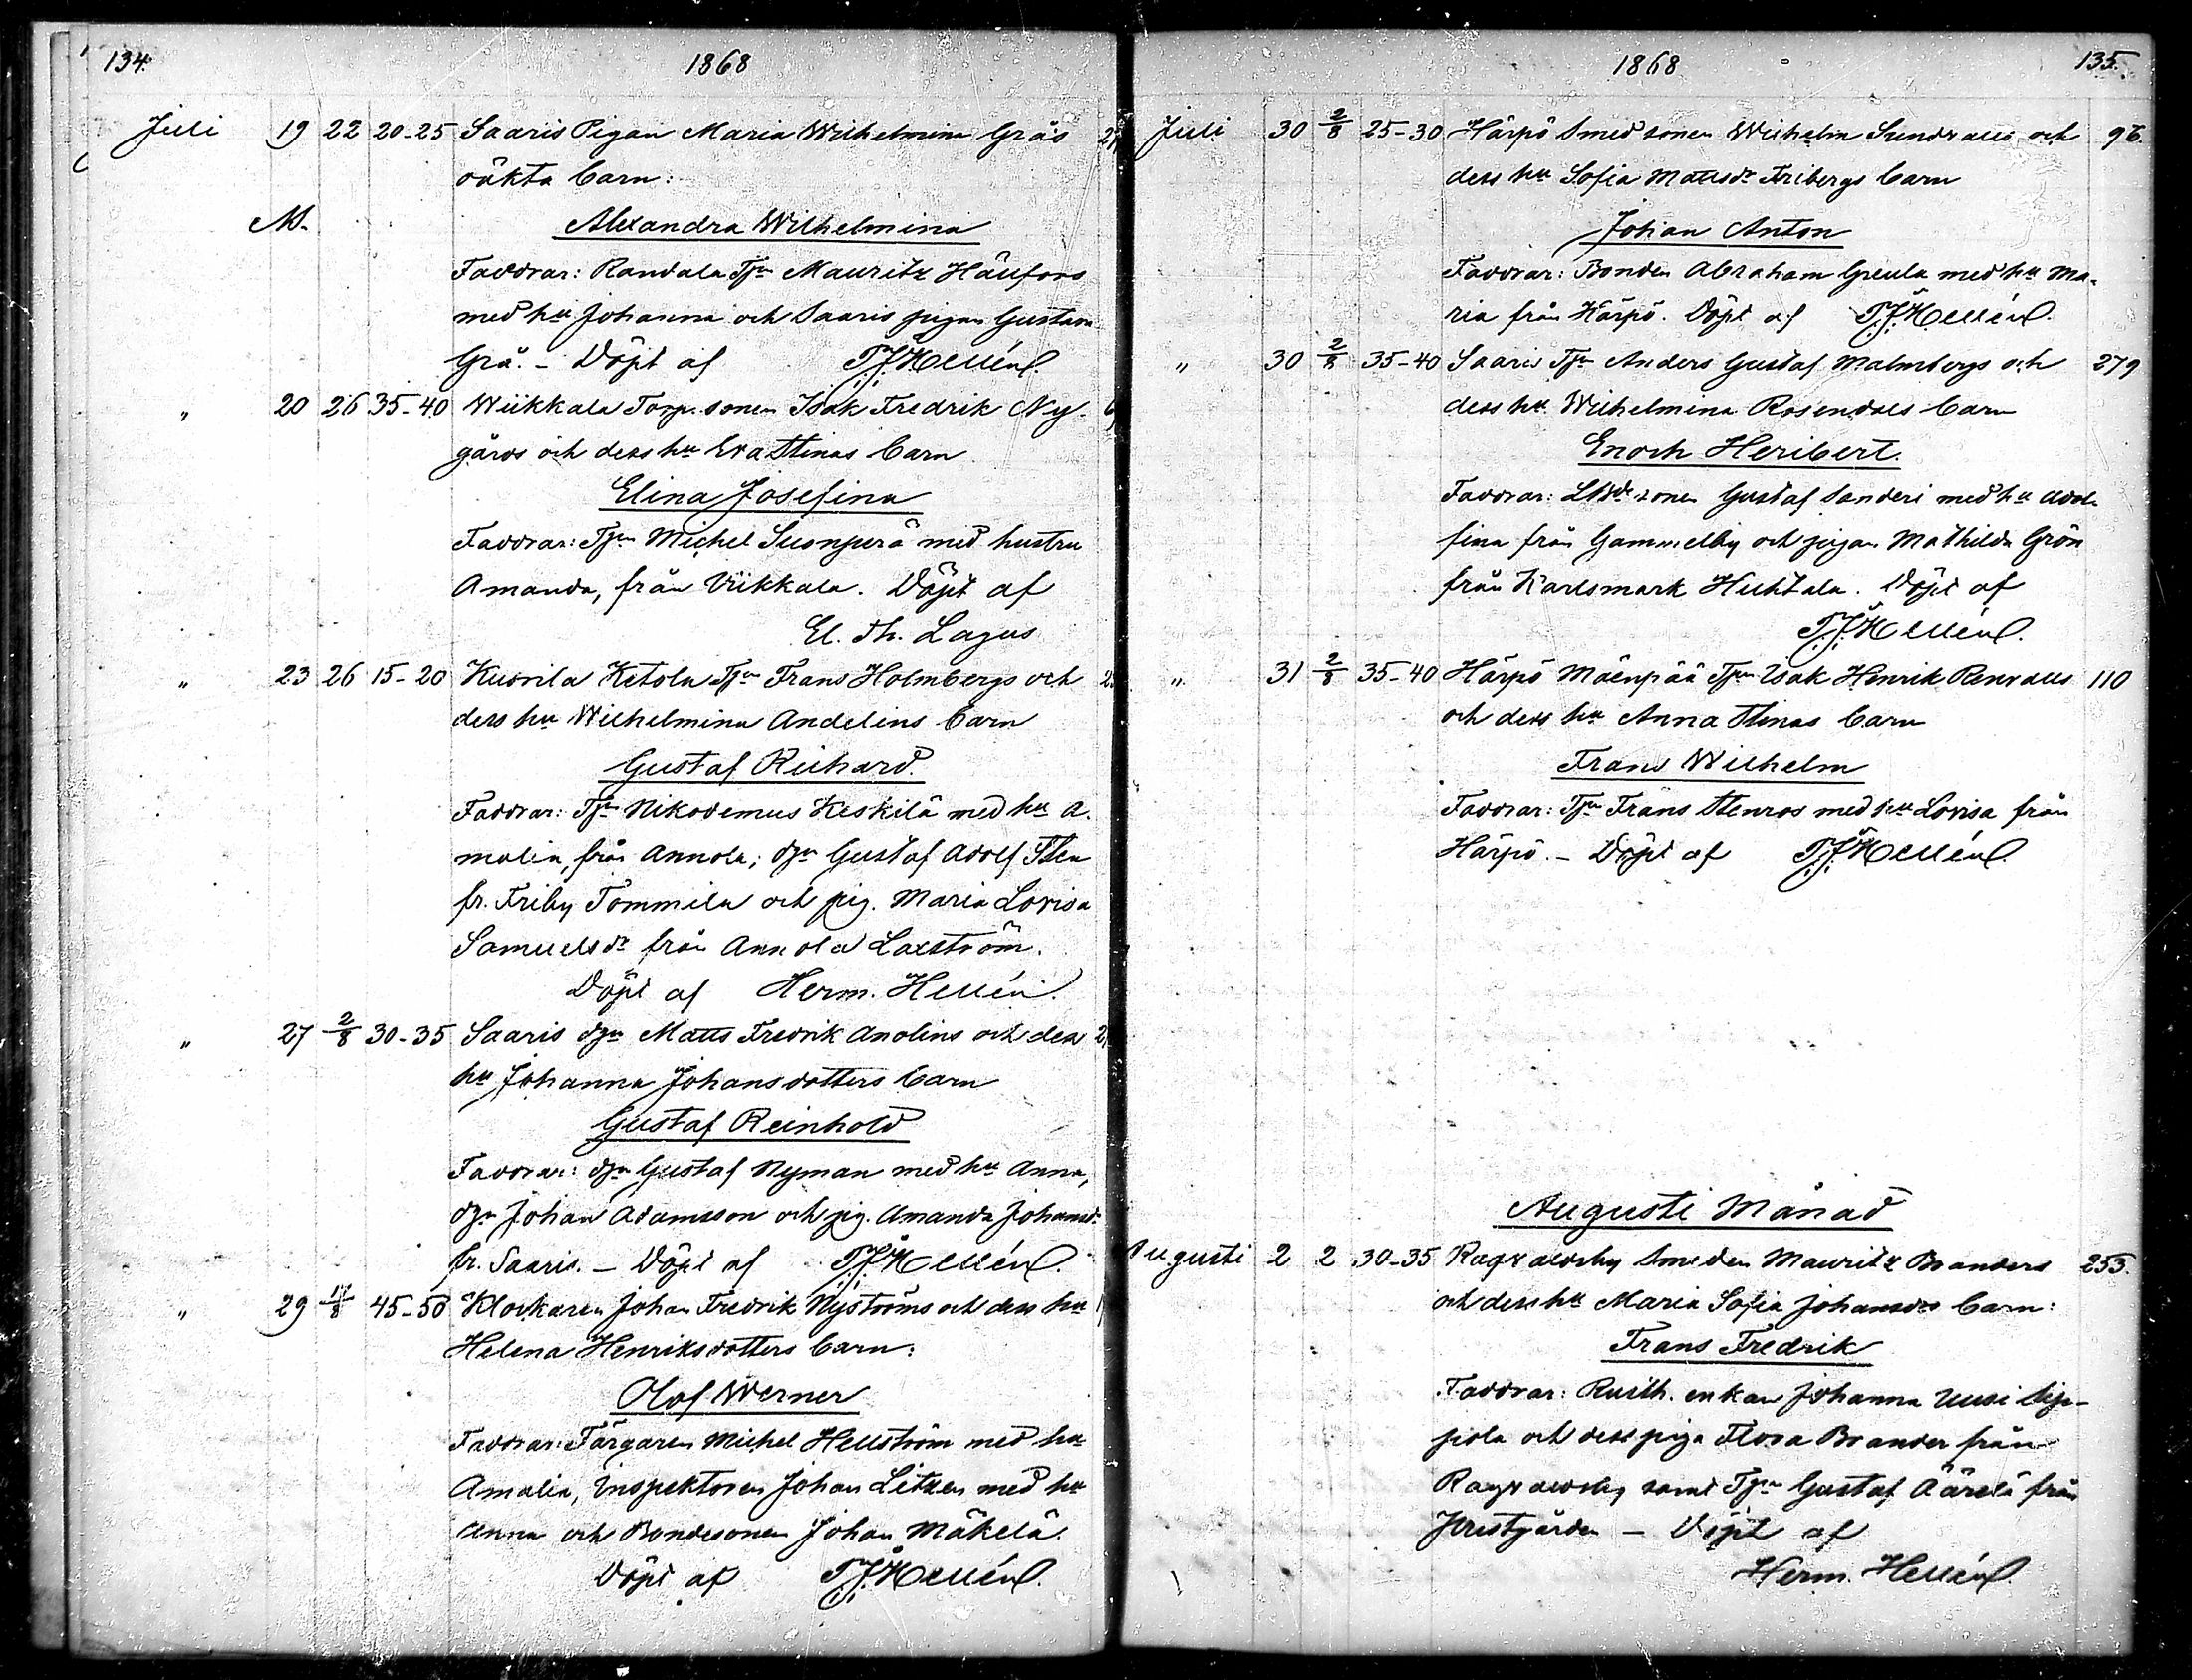 134. 1868
Juli 19 22 20-25 Saaris Pigan Maria Wilhelmina Grås
oäkta barn:
Alexandra Wilhelmina
Faddrar: Randala Tjn Mauritz Hällfors
med hu Johanna och Saaris pigan Gustava
Grå. - Döpt af TJHellén.
" 20 26 35-40 Wiikkala Torp. sonen Isak Fredrik Ny-
gårds och dess hu Eva Stinas barn
Elina Josefina
Faddrar: Tjn Michel Suonperä med hustru
Amanda, från Viikkala. Döpt af
El. Th. Lagus
" 23 26 15-20 Kuorila Ketola Tjn Frans Holmbergs och
dess hu Wilhelmina Andelins barn
Gustaf Richard.
Faddrar: Tjn Nikodemus Keskilä med hu A-
malia, från Annola; djn Gustaf Adolf Sten
fr. Friby Tommila och pig. Maria Lovisa
Samuelsdr från Annola Laxström.
Döpt af Herm. Hellén.
" 27 2/8 30-35 Saaris djn Matts Fredrik Anolins och dess
hu Johanna Johansdotters barn
Gustaf Reinhold
Faddrar: djn Gustaf Nyman med hu Anna,
djn Johan Adamsson och pig. Amanda Johansdr
fr. Saaris. - Döpt af TJHellén.
" 29 45-50 Klockaren Johan Fredrik Nyströms och dess hu
Helena Henriksdotters barn:
Olof Werner
Faddrar: Färgaren Michel Hellström med hu
Amalia, Inspektoren Johan Litzen med hu
Anna och Bondesonen Johan Mäkelä.
Döpt af TJHellén.
1868 135.
Juli 30 2/8 25-30 Härpö Smedsonen Wilhelm Sundvalls och 96.
dess hu Sofia Mattsdr Fribergs barn
Johan Anton
Faddrar: Bonden Abraham Greula med hu Ma-
ria från Härpö. Döpt af TJHellén.
" 30 2/8 35-40 Saaris Tjn Anders Gustaf Malmbergs och 279
dess hu Wilhelmina Rosendals barn
Enoch Heribert.
Faddrar: sonen Gustaf Sanderi med hu Adol-
fina från Gammelby och pigan Mathilda Grön
från Karlsmark Huhtala. Döpt af
TJHellén.
" 31 2/8 35-40 Härpö Mäenpää Tjn Isak Henrik Renvalls 110
och dess hu Anna Stinas barn
Frans Wilhelm
Faddrar: Tjn Frans Stenros med hu Lovisa från
Härpö. - Döpt af TJHellén.
Augusti Månad
Augusti 2 2 30-35 Ragvaldsby Smeden Mauritz Branders 253.
och dess hu Maria Sofia Johansdrs barn:
Frans Fredrik
Faddrar: Rusth. enkan Johanna Uusi Sip-
pola och dess piga Flora Brander från
Ragvaldsby samt Tjn Gustaf Äärelä från
Prestgården - Döpt af
Herm. Hellén.